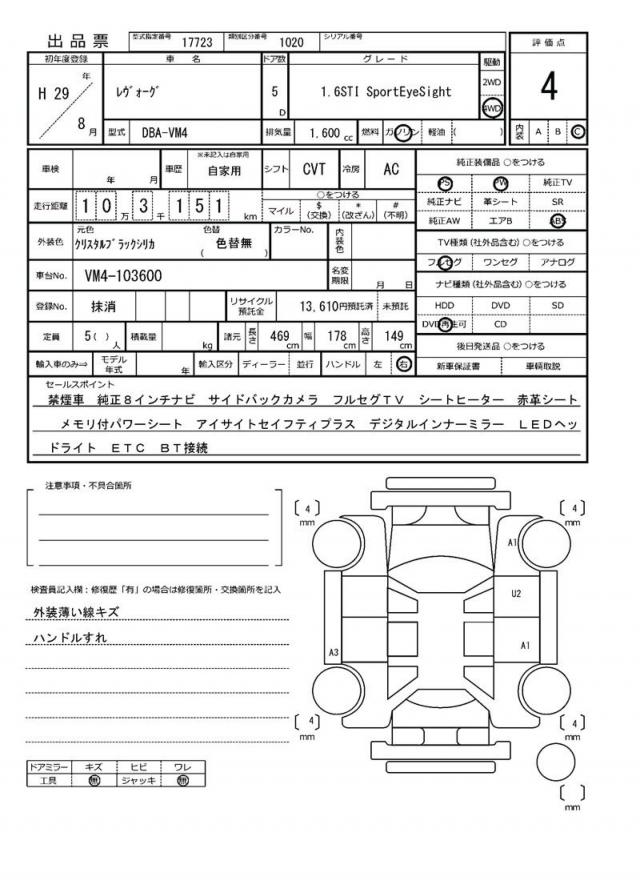 出品票 型式指定番号 17723 類別区分番号 1020 シリアル番号
初年度登録 車名 ドア数 グレード 駆動 評価点
H 29 年 8 月 ﾚｳﾞｫｰｸﾞ 5 D 1.6STI SportEyeSight 2WD 4WD 4
型式 DBA-VM4 排気量 1.600 cc 燃料 ガソリン 軽油 ( ) 内装 A B C
車検 年 月 車歴 ※未記入は自家用 自家用 シフト CVT 冷房 AC
走行距離 10万3千151km マイル ○をつける $(交換) *(改ざん) #(不明)
外装色 元色 ｸﾘｽﾀﾙﾌﾞﾗｯｸｼﾘｶ 色替 ( 色替無 ) カラーNo. 内装色
車台No. VM4-103600 名変期限 月 日
登録No. 抹消 リサイクル預託金 13,610円預託済 未預託
定員 5( )人 積載量 kg 諸元 長さ 469cm 幅 178cm 高さ 149cm
輸入車のみ⇒ モデル年式 年 輸入区分 ディーラー 並行 ハンドル 左 右
純正装備品 ○をつける
PS PW 純正TV
純正ナビ 革シート SR
純正AW エアB ABS
TV種類(社外品含む) ○をつける
フルセグ ワンセグ アナログ
ナビ種類(社外品含む) ○をつける
HDD DVD SD
DVD再生可 CD
後日発送品 ○をつける
新車保証書 車輌取説
セールスポイント
禁煙車 純正8インチナビ サイドバックカメラ フルセグTV シートヒーター 赤革シート
メモリ付パワーシート アイサイトセイフティプラス デジタルインナーミラー LEDヘッ
ドライト ETC BT接続
注意事項・不具合箇所
検査員記入欄：修復歴「有」の場合は修復箇所・交換箇所を記入
外装薄い線キズ
ハンドルすれ
ドアミラー キズ ヒビ ワレ
工具 無 ジャッキ 無
[ 4 ] mm
[ 4 ] mm
A1
U2
A3
A1
[ 4 ] mm
[ 4 ] mm
[ ] mm